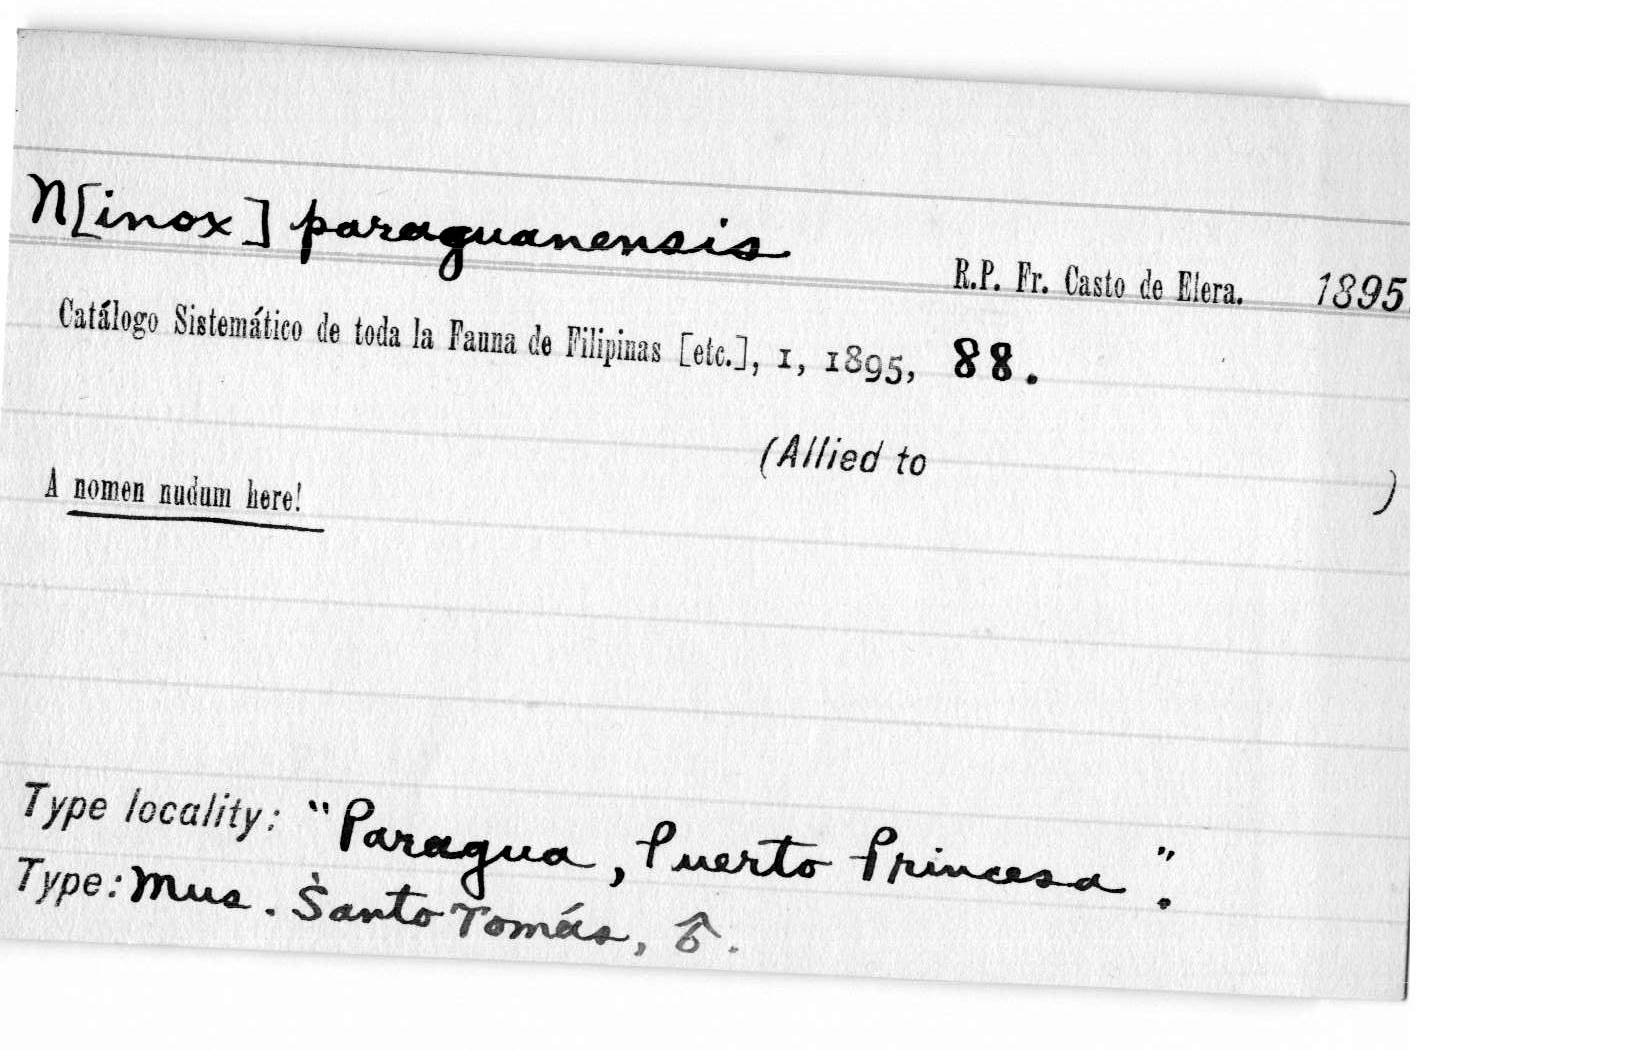 N[inox] paraguanensis
R.P. Fr. Casto de Elera. 1895
Catálogo Sistemático de toda la Fauna de Filipinas [etc.], 1, 1895, 88.
(Allied to )
A nomen nudum here!
Type locality: "Paragua, Puerto Princesa".
Type: Mus. Santo Tomás, ♂.